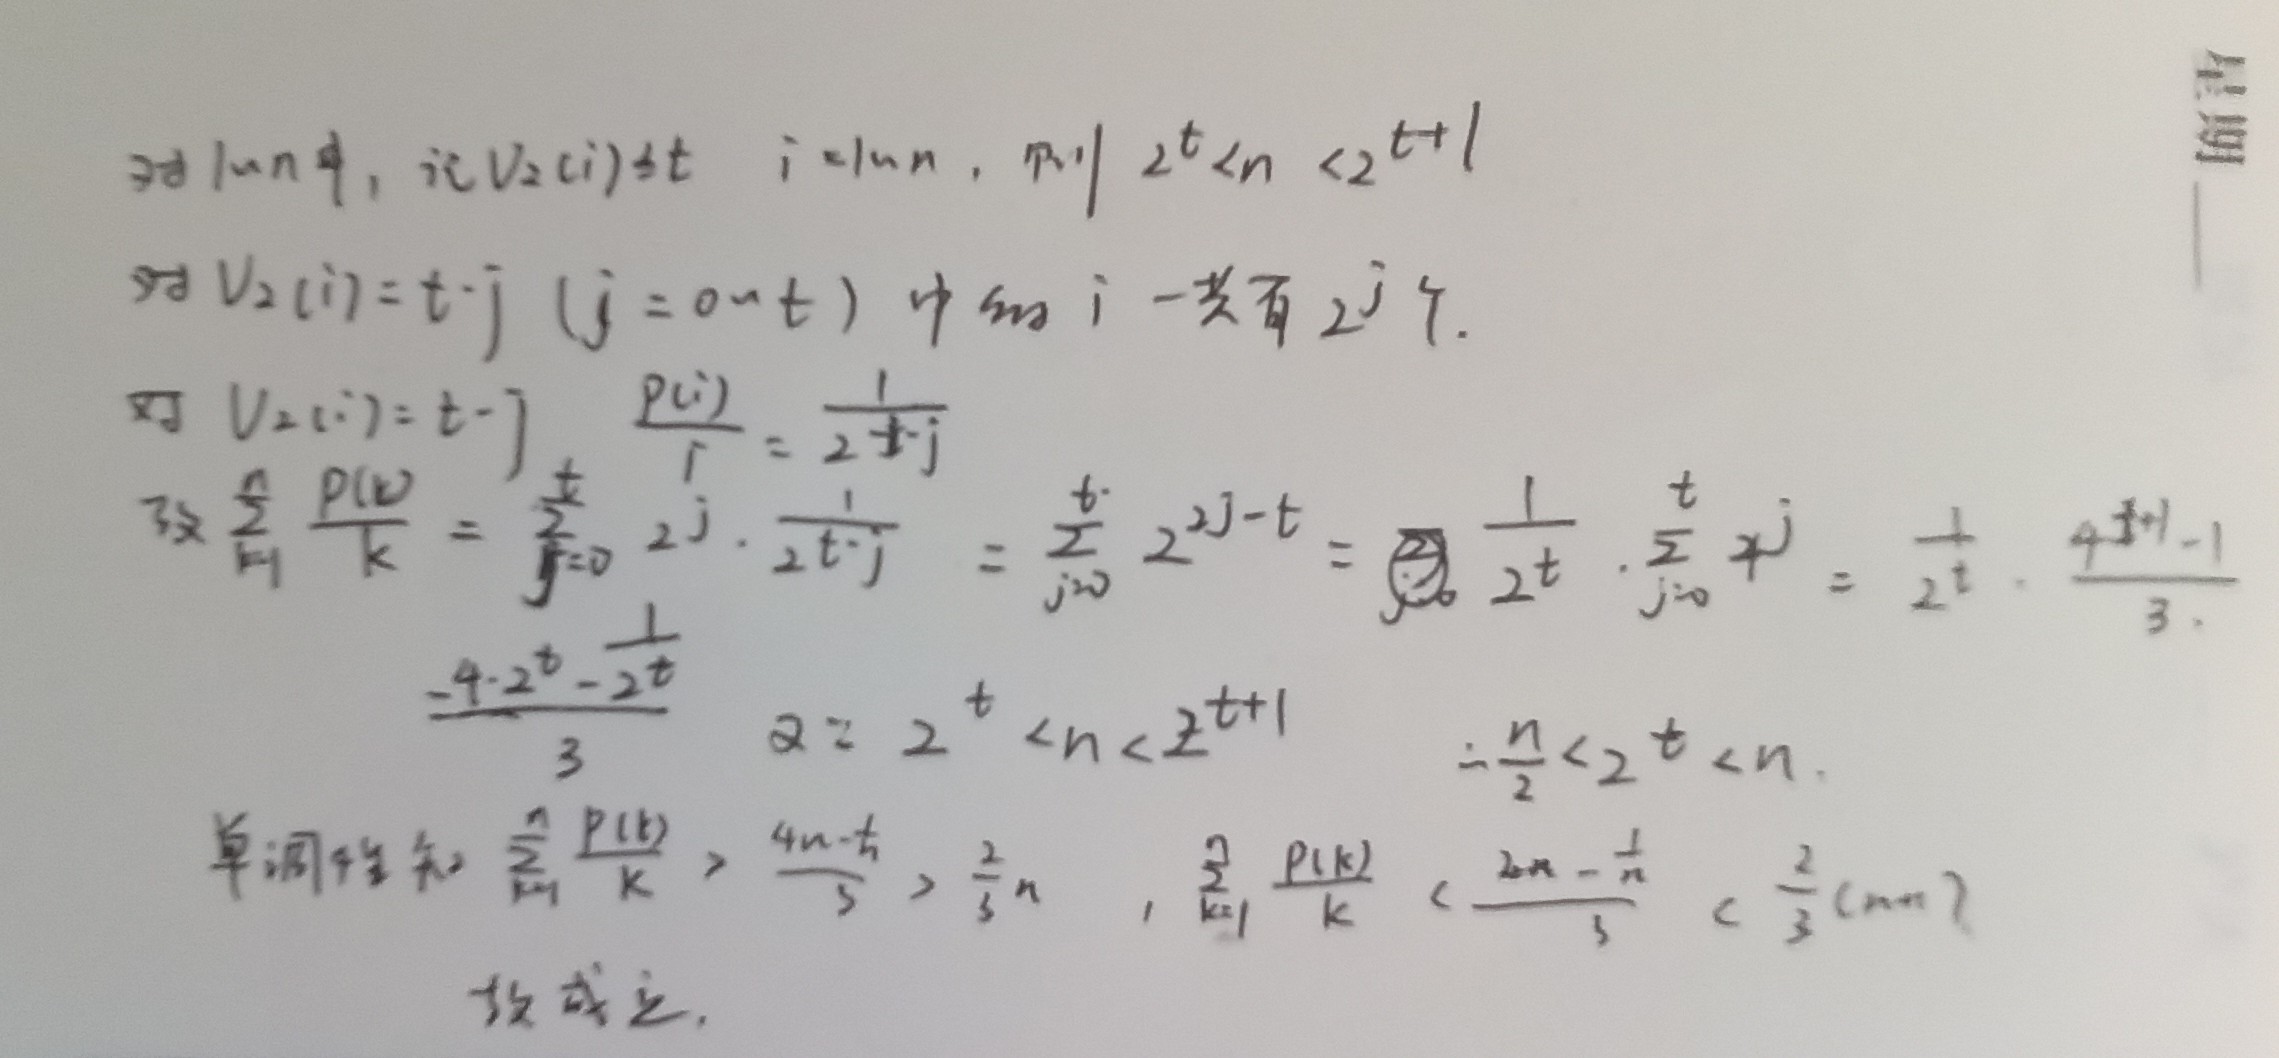 对1~n中,记V₂(i)≤t i=1~n,则 2^t<n<2^{t+1}
对V₂(i)=t-j (j=0~t)中的i一共有2^j个.
对 V₂(i)=t-j P(i)/i = 1/2^{t-j}
故 ∑_{k=1}^{n} P(k)/k = ∑_{j=0}^{t} 2^j · 1/2^{t-j} = ∑_{j=0}^{t} 2^{2j-t} = 1/2^t · ∑_{j=0}^{t} 4^j = 1/2^t · (4^{t+1}-1)/3.
(4·2^t - 1/2^t)/3 2^t<n<2^{t+1} ∴ n/2<2^t<n.
单调性知 ∑_{k=1}^{n} P(k)/k > (4n-1/n)/3 > 2/3 n , ∑_{k=1}^{n} P(k)/k < (2n - 1/n)/3 < 2/3
故成立.
星期